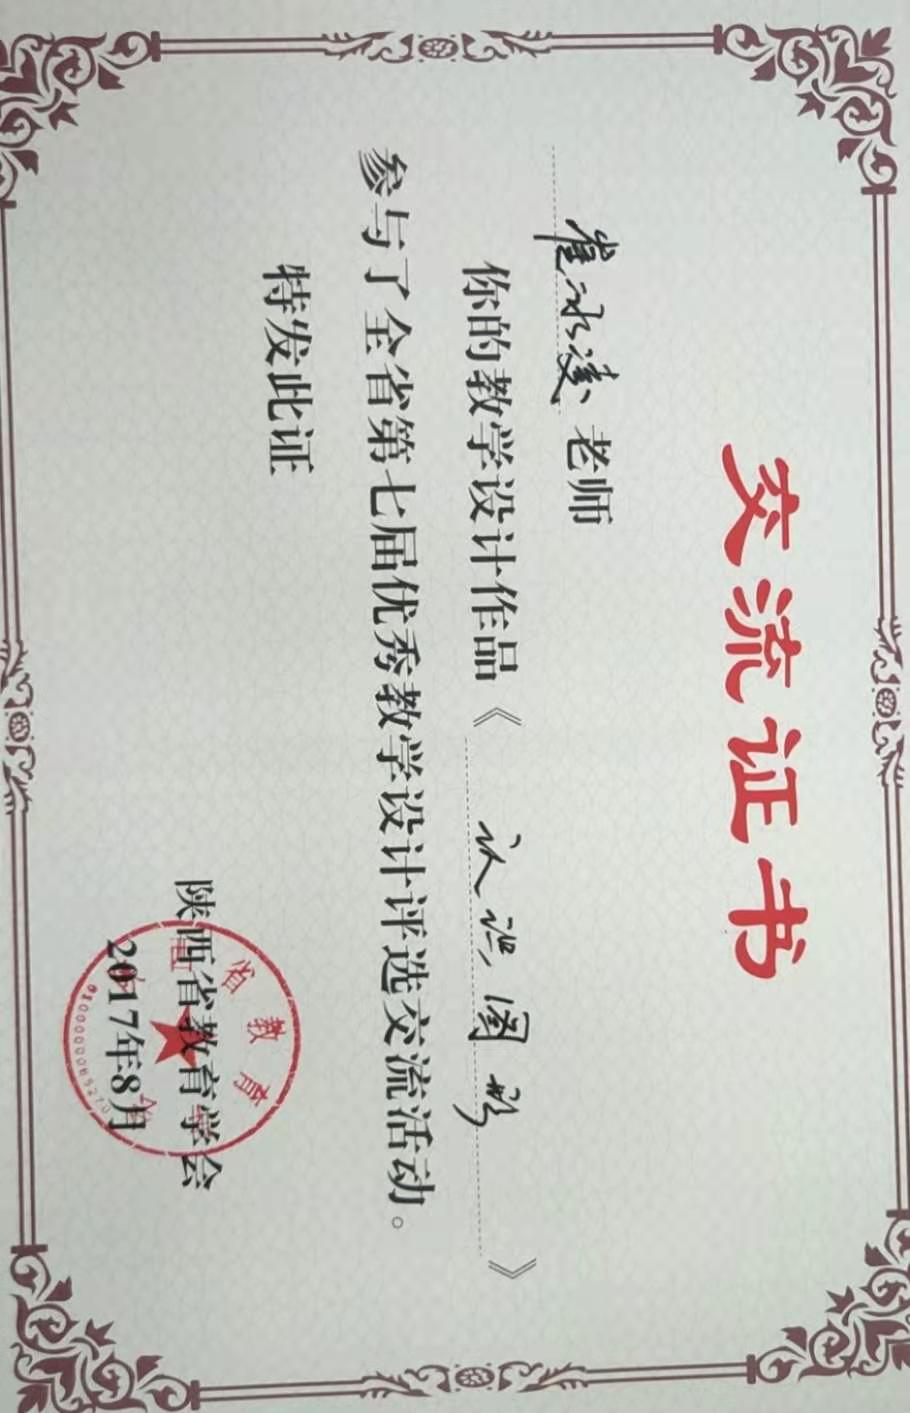 交流证书
崔永凌 老师
你的教学设计作品《 认识图形 》
参与了全省第七届优秀教学设计评选交流活动。
特发此证
陕西省教育学会
2017年8月
省教育